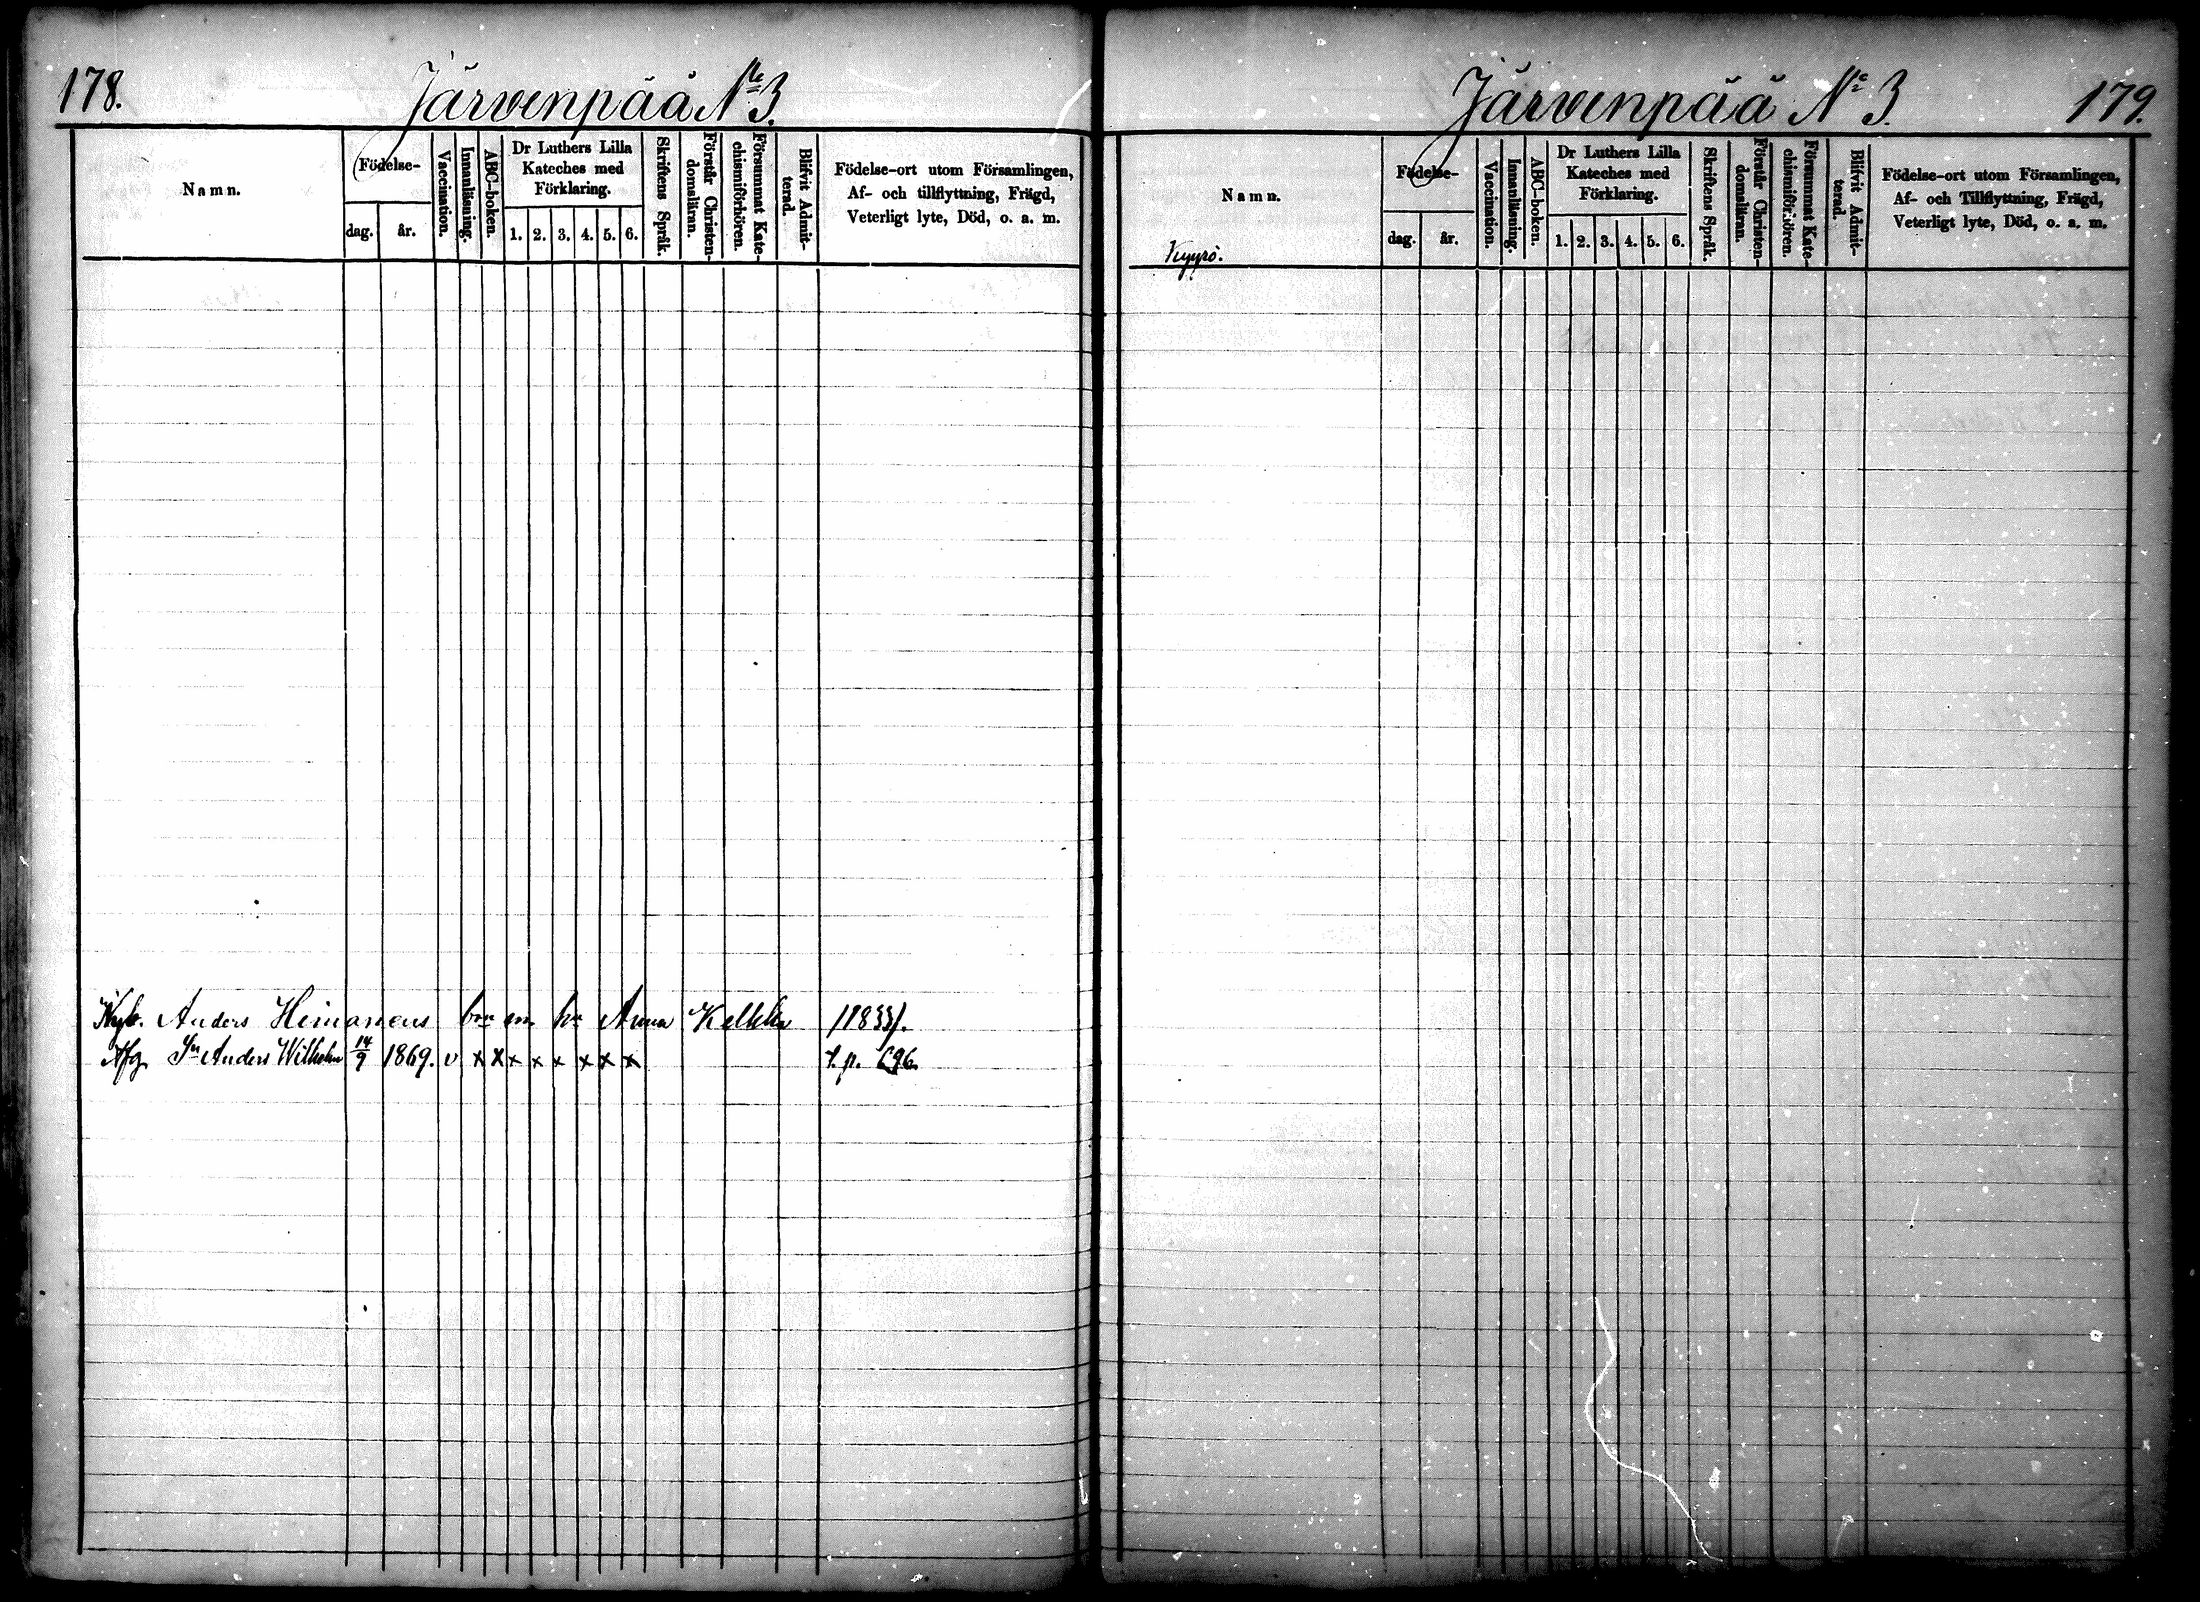 178.
Järvenpää No 3.
Namn.
Födelse-
dag.
år.
Vaccination.
Innanläsning.
ABC-boken.
Dr Luthers Lilla
Kateches med
Förklaring.
1. 2. 3. 4. 5. 6.
Skriftens Språk.
Förstår Christen-
domsläran.
Försummat Kate-
chismiförhören.
Blifvit Admit-
terad.
Födelse-ort utom Församlingen,
Af- och tillflyttning, Frägd,
Veterligt lyte, Död, o. a. m.
Anders Heimonens hu Anna
Sn Anders Wilhelm 14/9 1869. v x x x x x x x x
Järvenpää No 3
179.
Namn.
Kyyrö.
Födelse-
dag.
år.
Vaccination.
Innanläsning.
ABC-boken.
Dr Luthers Lilla
Kateches med
Förklaring.
1. 2. 3. 4. 5. 6.
Skriftens Språk.
Förstår Christen-
domsläran.
Försummat Kate-
chismiförhören.
Blifvit Admit-
terad.
Födelse-ort utom Församlingen,
Af- och Tillflyttning, Frägd,
Veterligt lyte, Död, o. a. m.